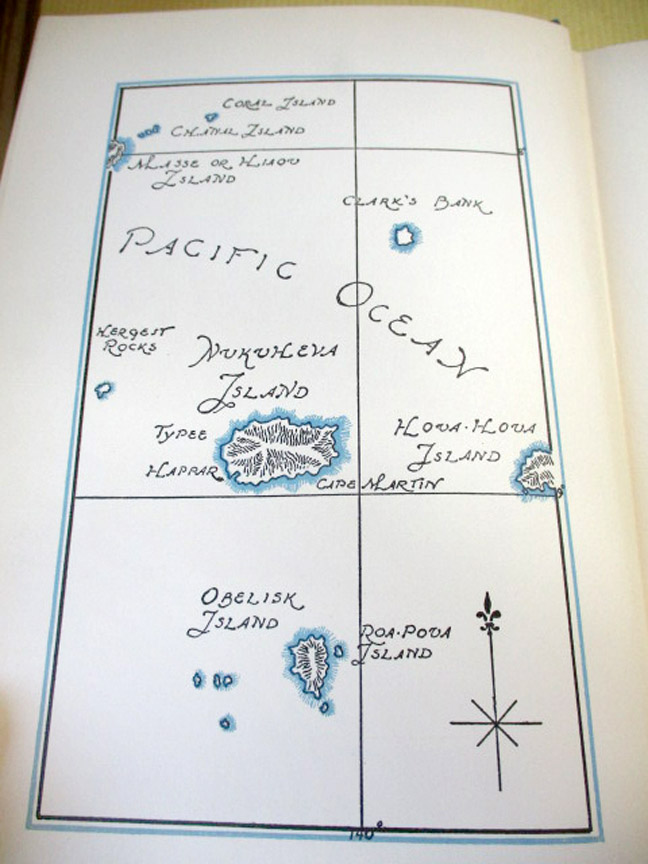 Coral Island
Chanal Island
Masse or Hiaou
Island
Clark's Bank
Pacific
Ocean
Hergest
Rocks
Nukuheva
Island
Typee
Happar
Cape Martin
Houa-Houa
Island
Obelisk
Island
Roa-Poua
Island
140°